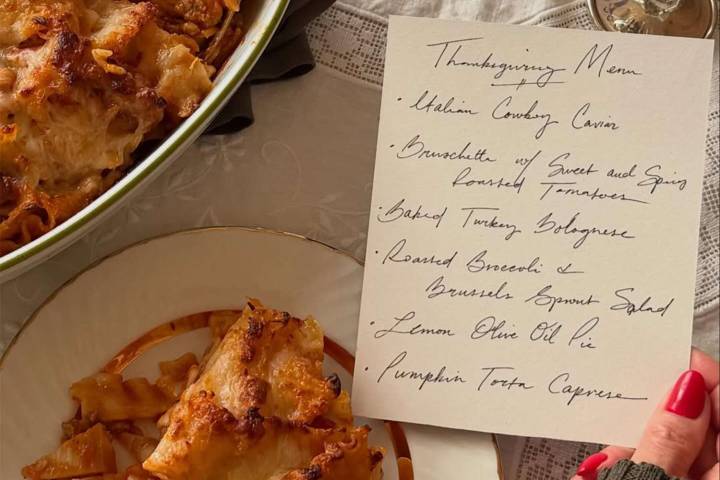 Thanksgiving Menu
· Italian Cowboy Caviar
· Bruschetta w/ Sweet and Spicy
Roasted Tomatoes
· Baked Turkey Bolognese
· Roasted Broccoli &
Brussels Sprout Salad
· Lemon Olive Oil Pie
· Pumpkin Torta Caprese